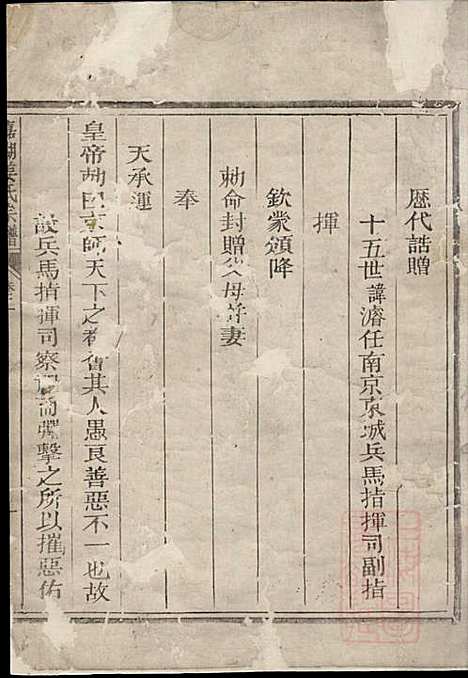 歷代誥贈
十五世諱濬任南京東城兵馬指揮司副指
揮
欽蒙頒降
勅命封贈父母并妻
奉
天承運
皇帝勅曰京師天下之都會其人愚良善惡不一也故
設兵馬指揮司察而彈擊之所以摧惡佑
姜氏宗譜